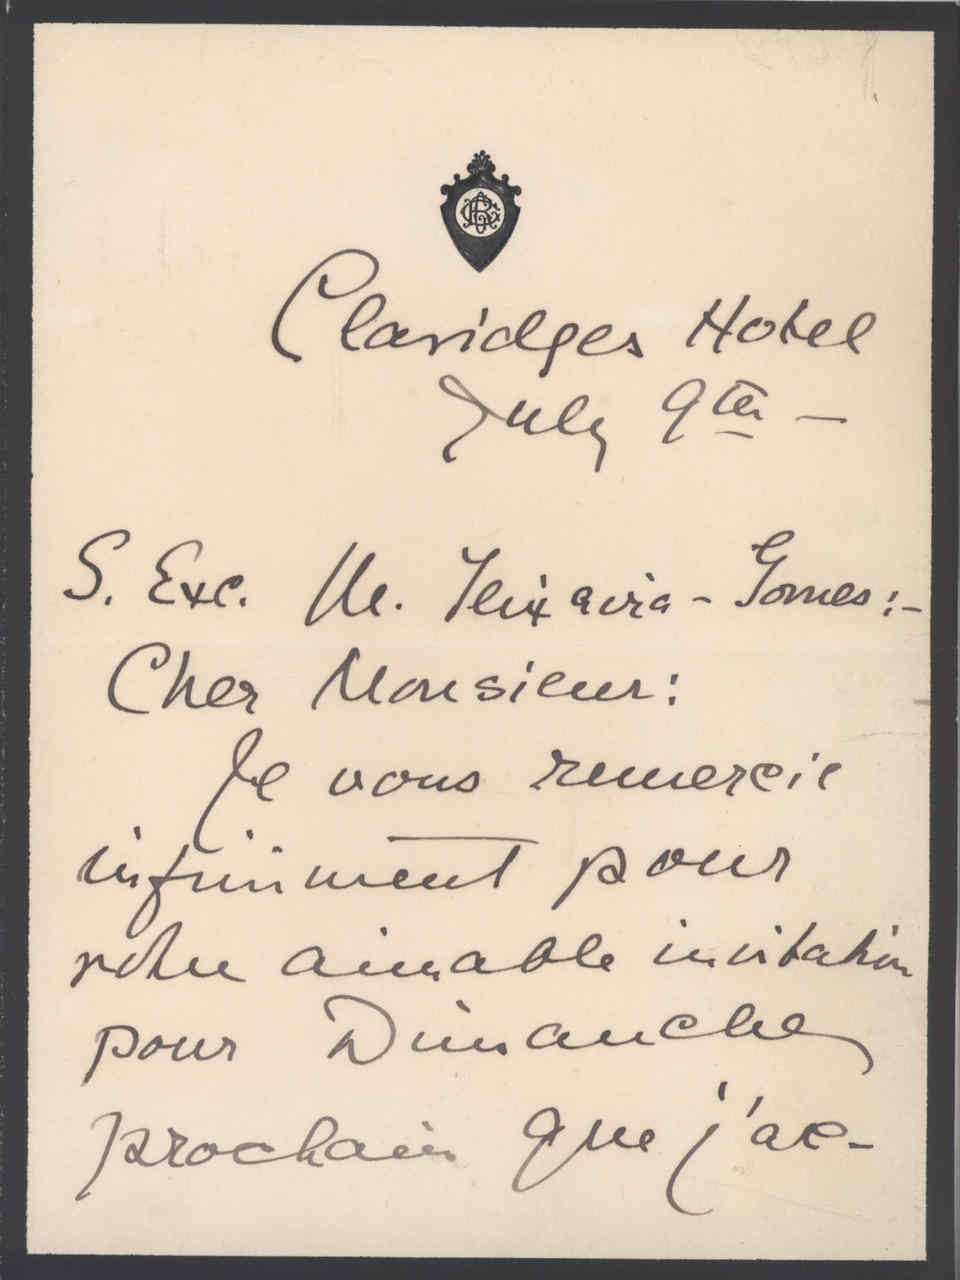 Claridges Hotel
July 9th –
S. Exc. M. Teixeira - Gomes:-
Cher Monsieur:
Je vous remercie
infiniment pour
votre aimable invitation
pour Dimanche
prochain que j'ac-